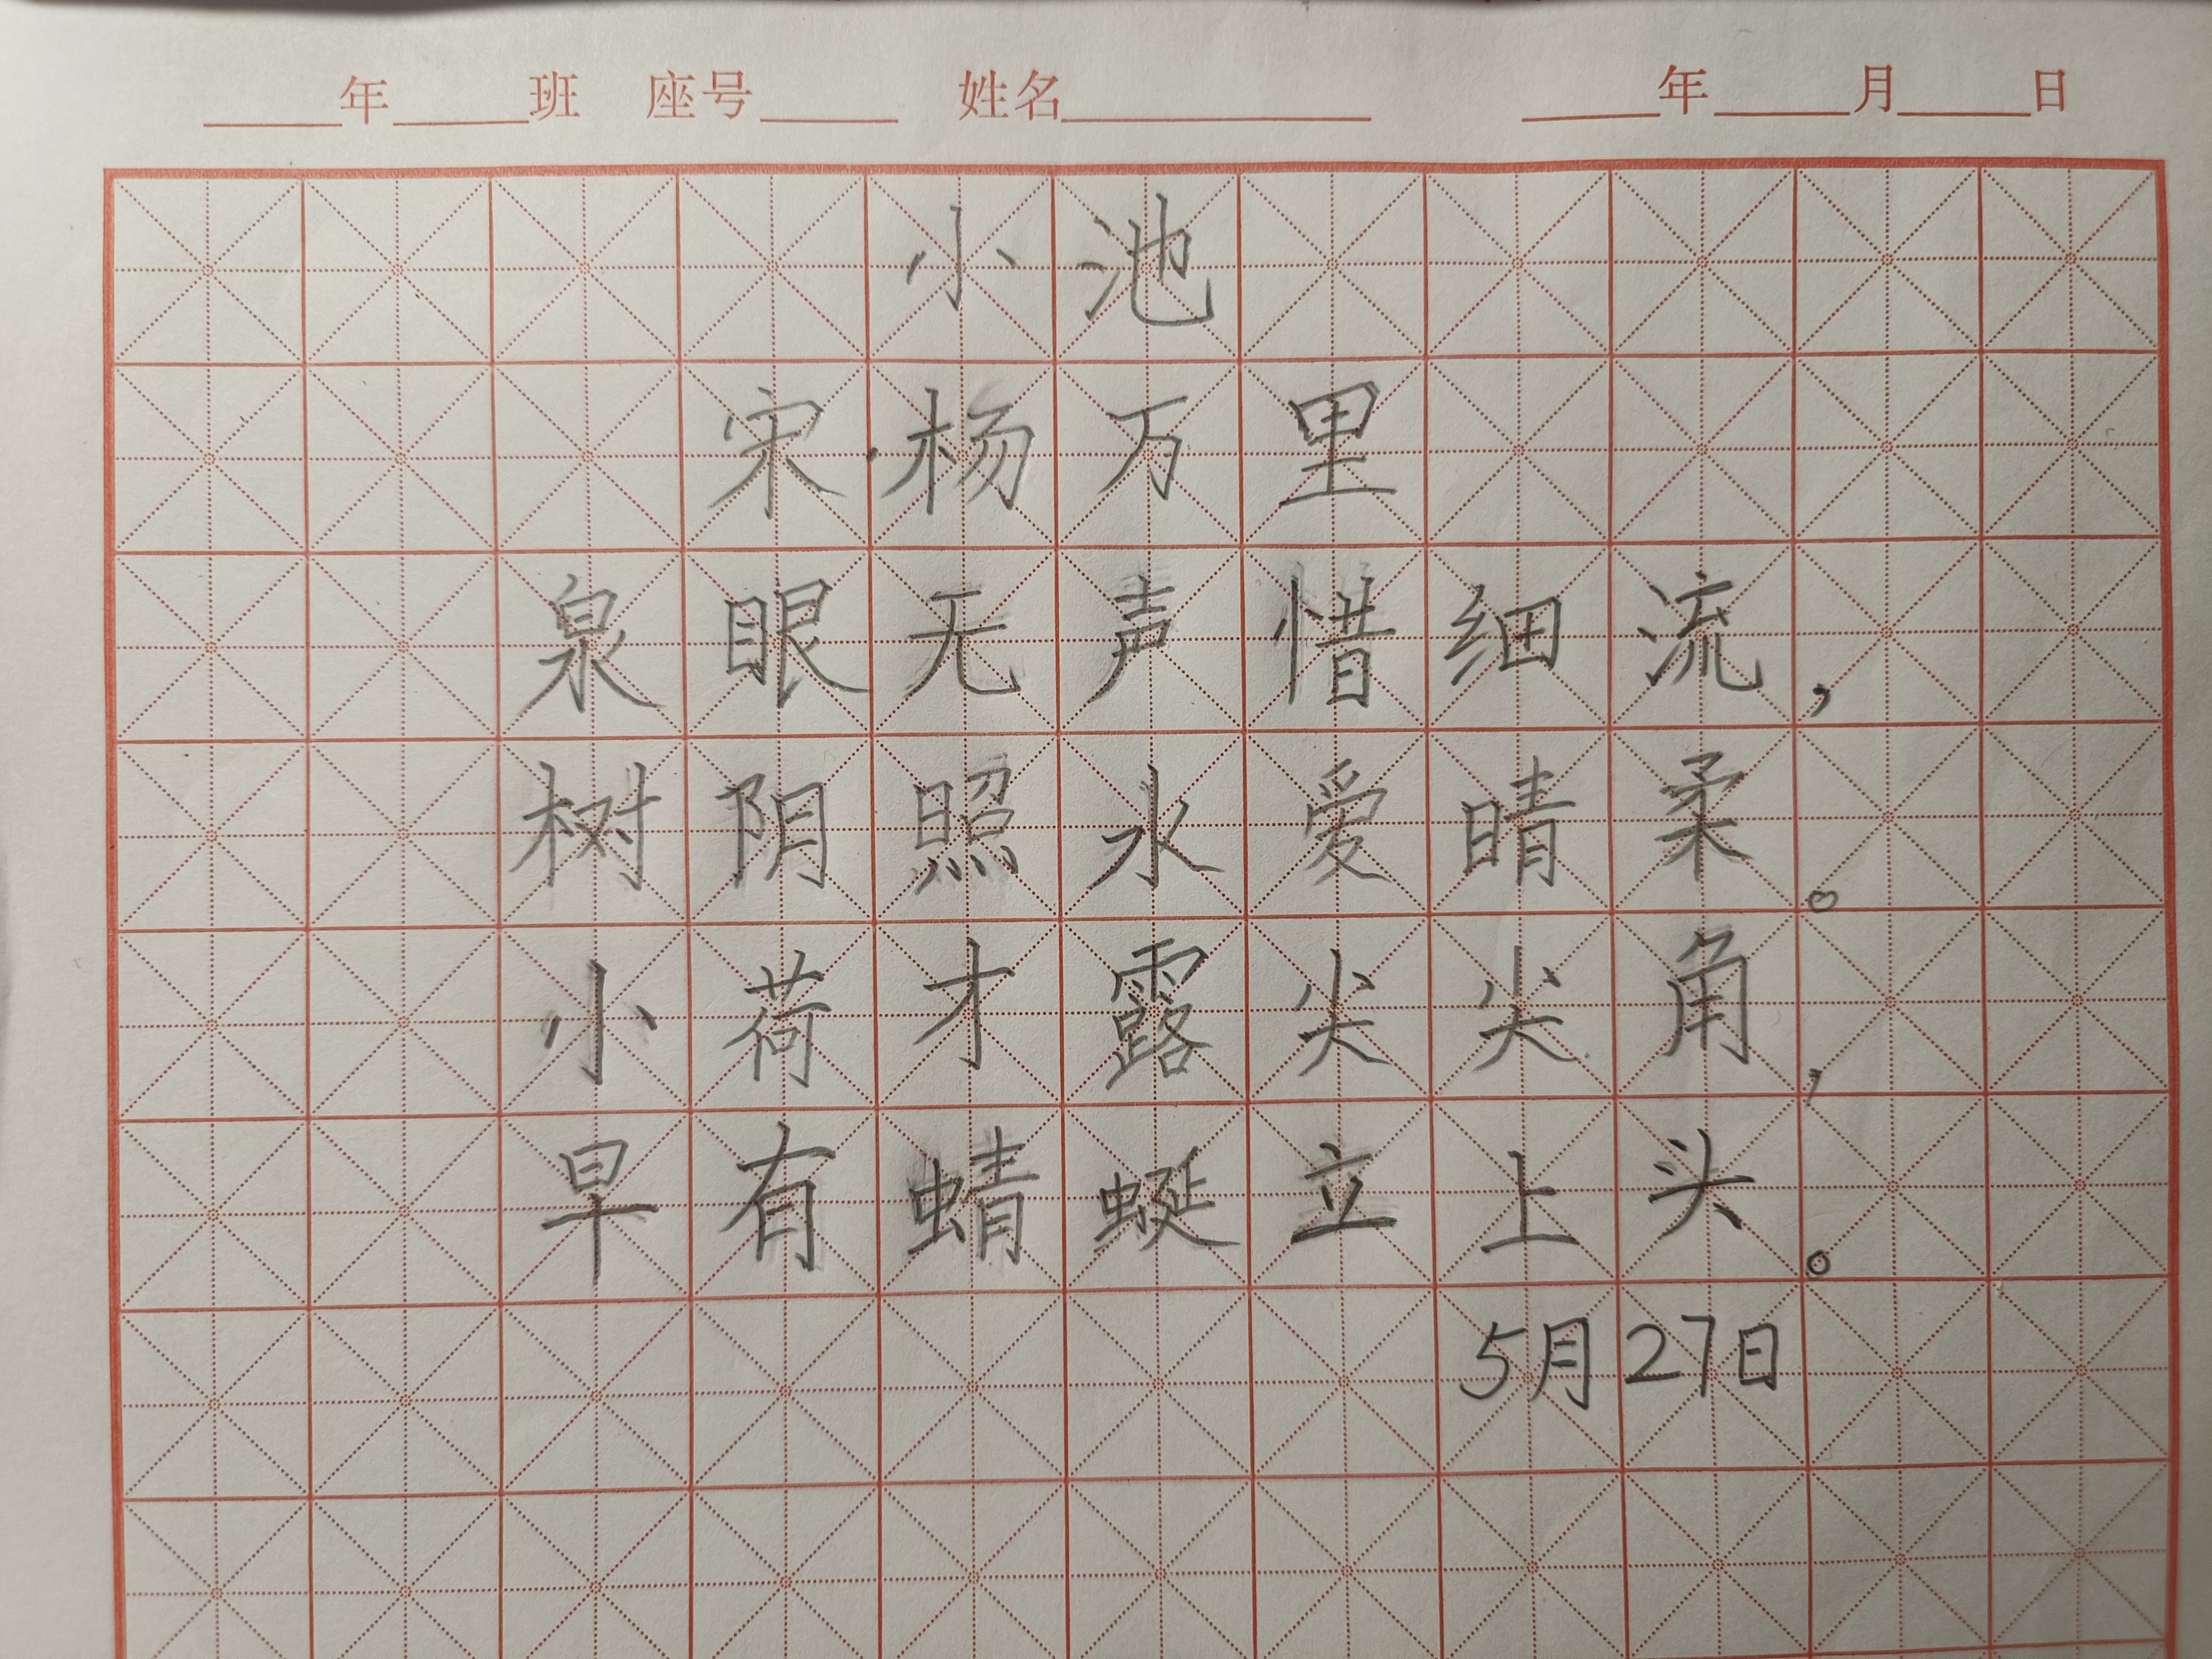 ____年____班 座号____ 姓名________ ____年____月____日
小池
宋·杨万里
泉眼无声惜细流，
树阴照水爱晴柔。
小荷才露尖尖角，
早有蜻蜓立上头。
5月27日